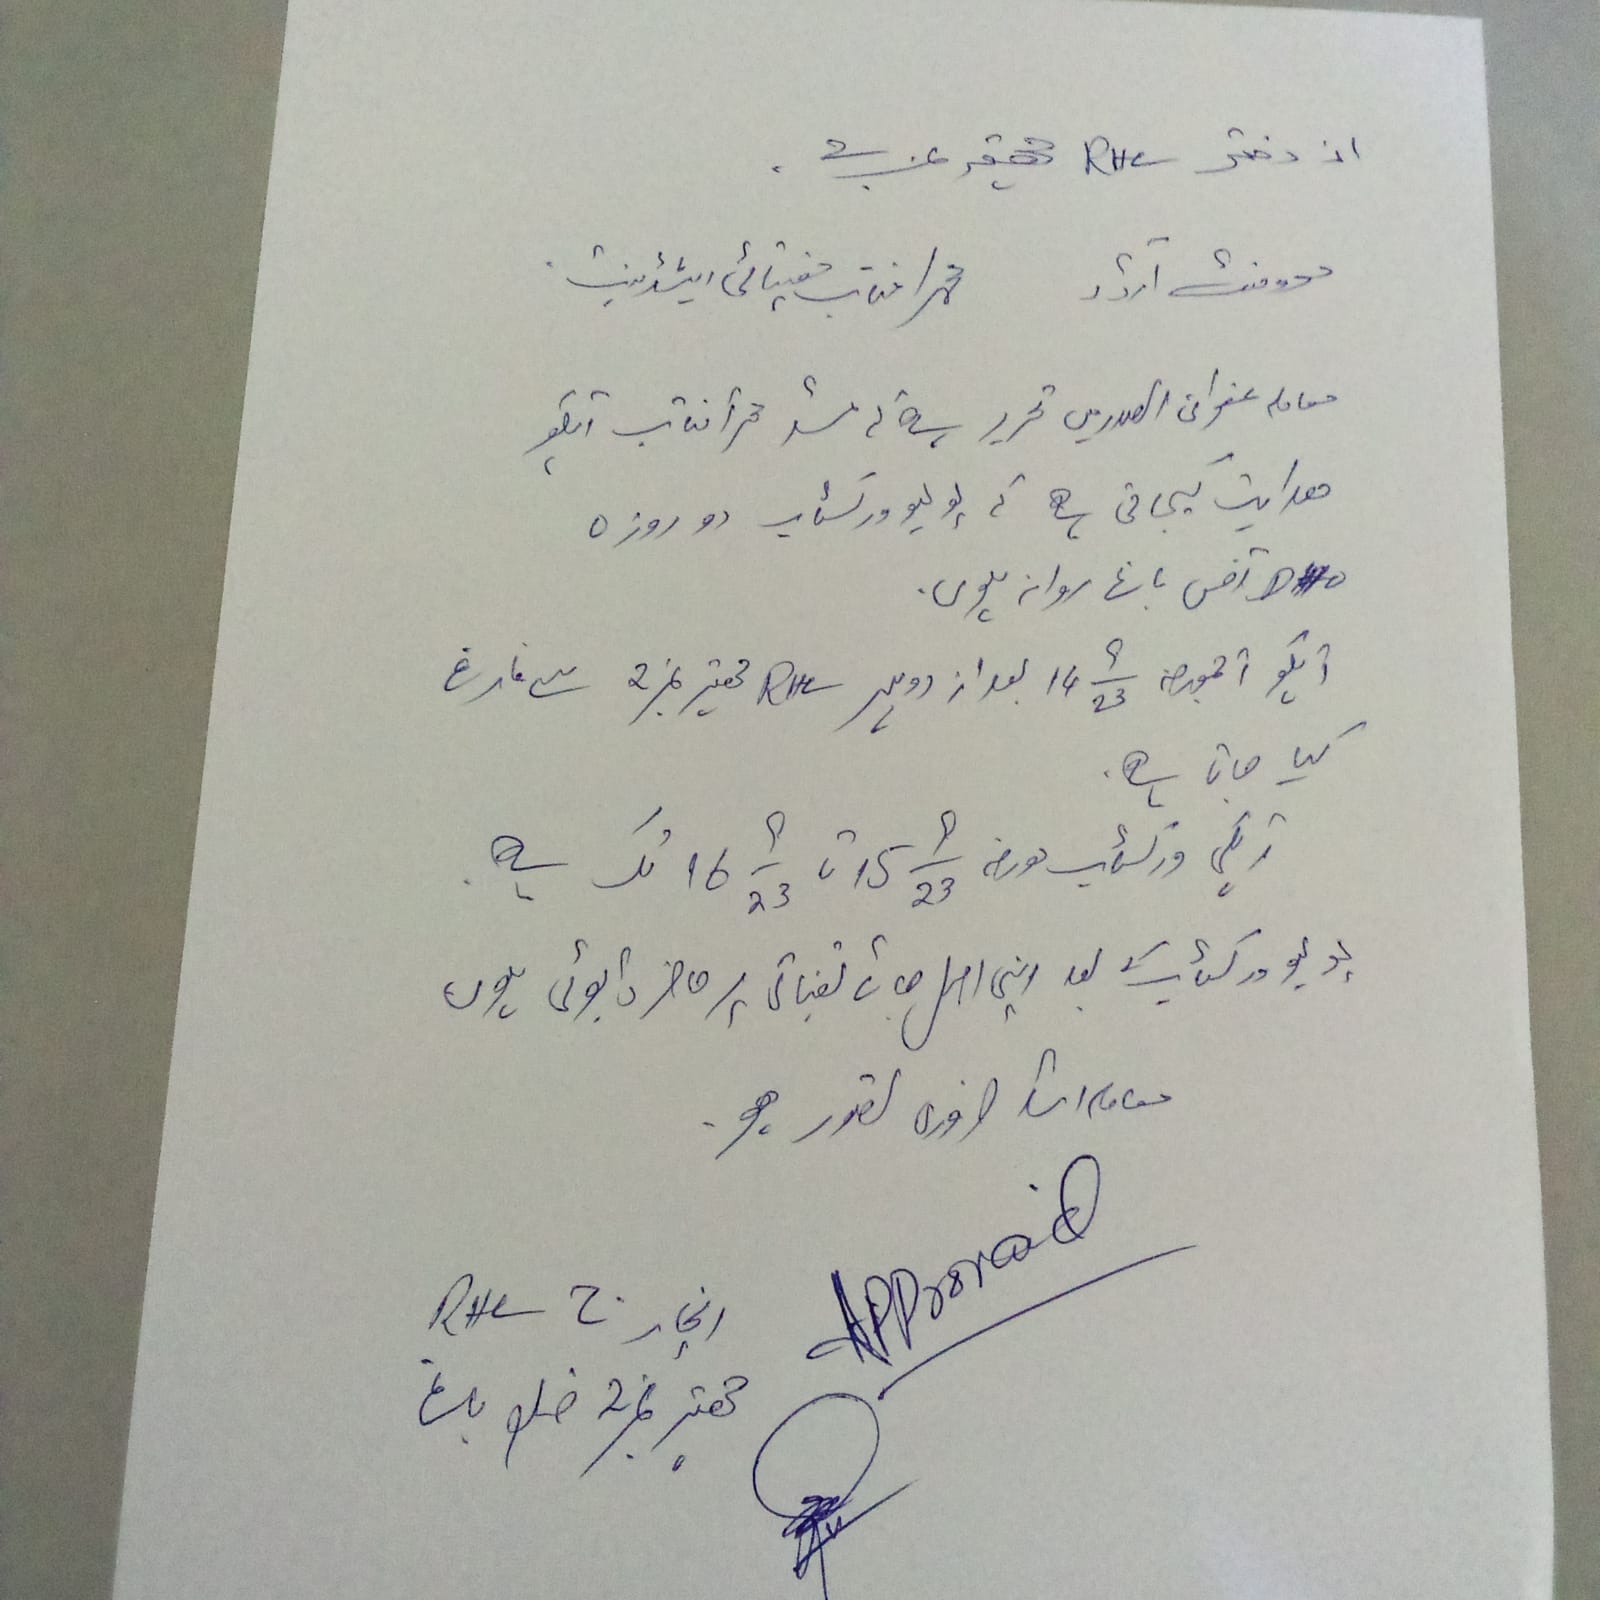 از دفتر RHC تھقیہ نمبر 2.
موومنٹ آرڈر محمد افتاب حفیتائی اسٹنٹ.
معاملہ عنوان الصدر میں تحریر ہے کہ مسٹر محمد آفتاب آپکو
ھدایت کیجاتی ہے کہ پولیو ورکشاپ دو روزہ
DHO آفس باغ روانہ ہوں.
آپکو آجمورخہ 14 9/23 بعد از دوپہر RHC تھقیہ نمبر 2 سے فارغ
کیا جاتا ہے.
آپکی ورکشاپ مورخہ 15 9/23 تا 16 9/23 تک ہے.
پولیو ورکشاپ کے بعد اپنی اصل جائے تعیناتی پر حاضر ڈیوٹی ہوں
معاملہ اشد ضروری تصور ہو.
Approvaid
انچارج RHC
تھقیہ نمبر 2 ضلع باغ